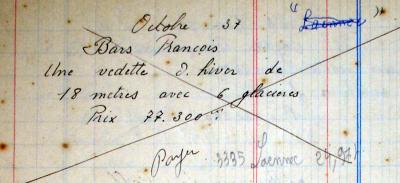 Octobre 37 "Laennec"
Bars François
Une vedette d. hiver de
18 mètres avec 6 glacieres
Prix 77.300
payer 3335 Laennec